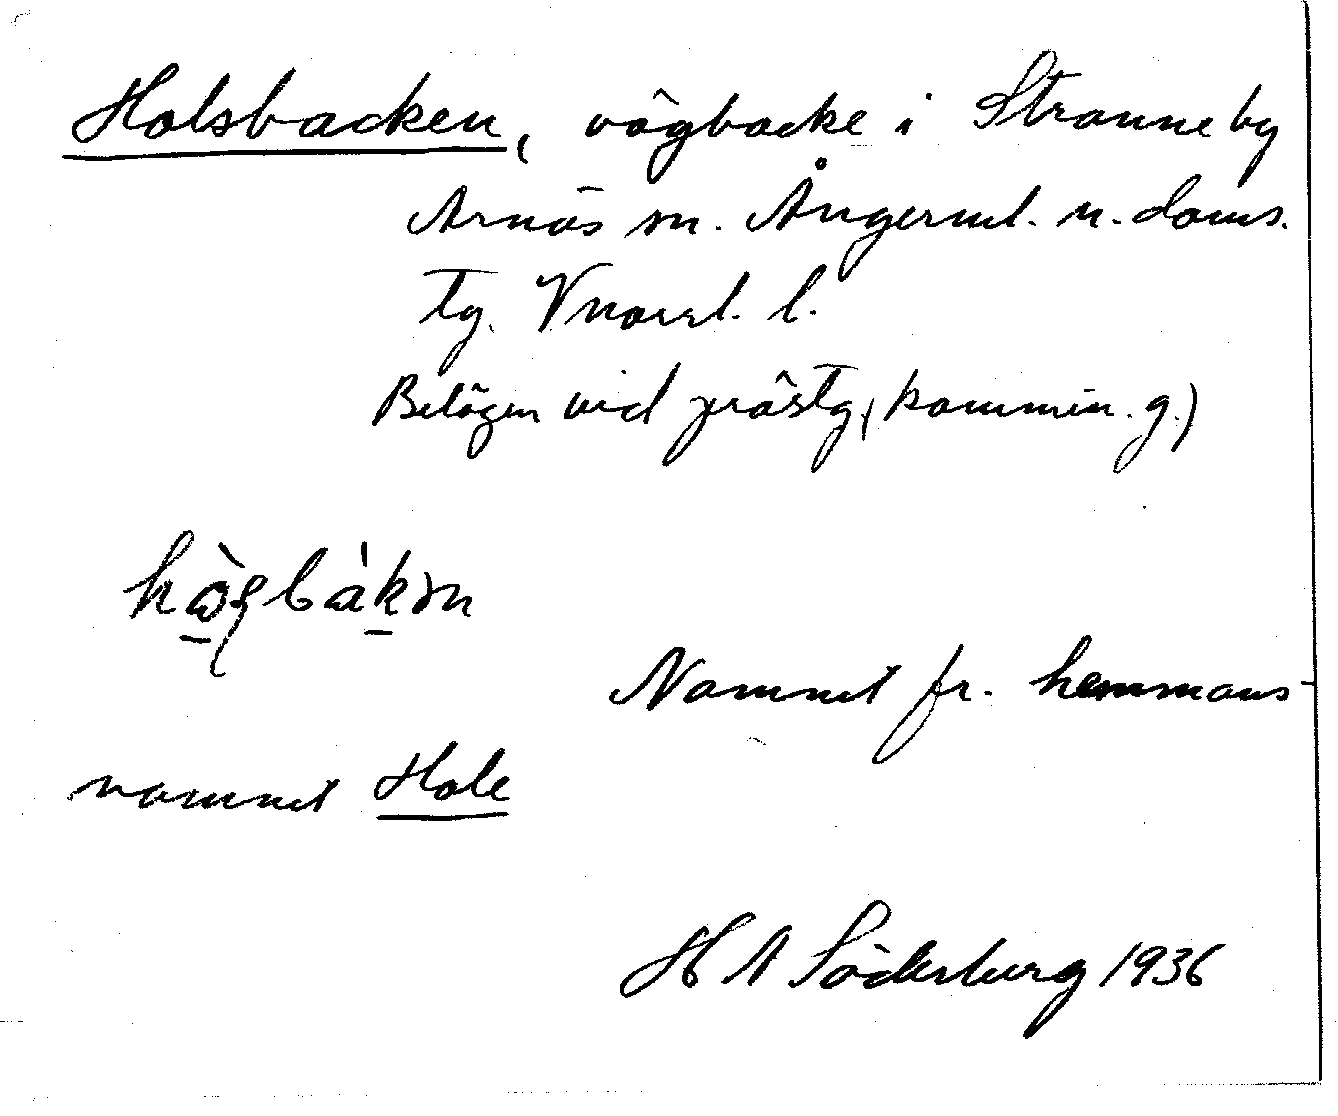 Holsbacken, vägbacke i Stranne by
Arnäs sn. Ångerml. n. doms.
tg. Vnorrl. l.
Belägen vid prästg. (kommin. g.)
Namnet fr. hemmans-
namnet Hole
H A Söderberg 1936